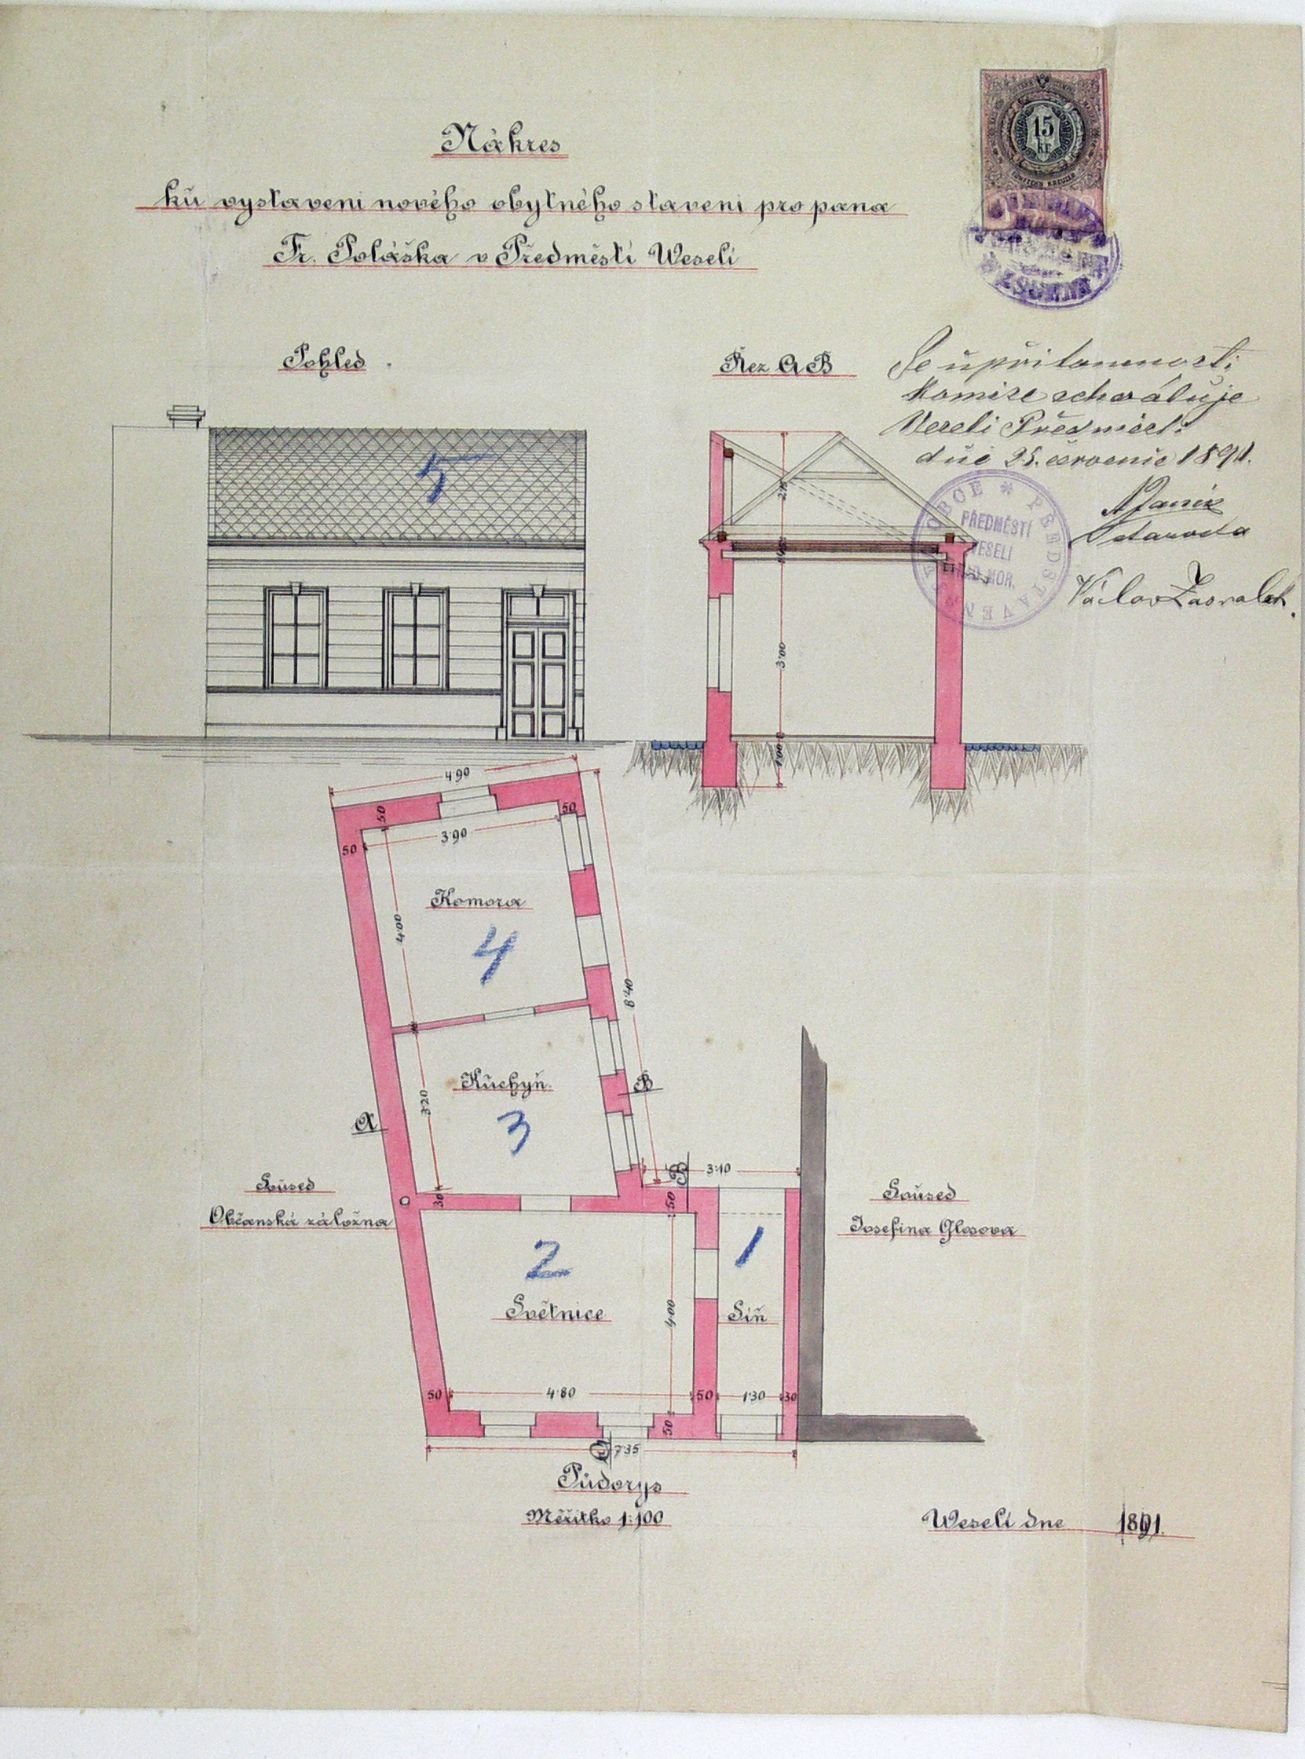 Nákres
kù vystavení nového obytného stavení pro pana
Fr. Poláška v Předměstí Weselí
15
kr.
Pohled
Řez AB
Se v přítomnosti
Komise schvaluje
Veselí Předměstí
dne 25. července 1891.
Starosta
Václav
PŘEDMĚSTÍ
VESELÍ
NAD MOR.
5
3'00
1'00
4'90
50
50
50
3'90
Komora
4
4'00
8'40
Kuchyň
3
3'20
A
B
B
3'10
30
50
Soused
Občanská záložna
Soused
Josefina Glosova
2
1
Světnice
4'00
Síň
50
4'80
50
1'30
30
50
A
7'35
Půdorys
Měřítko 1:100
Weselí dne 1891.